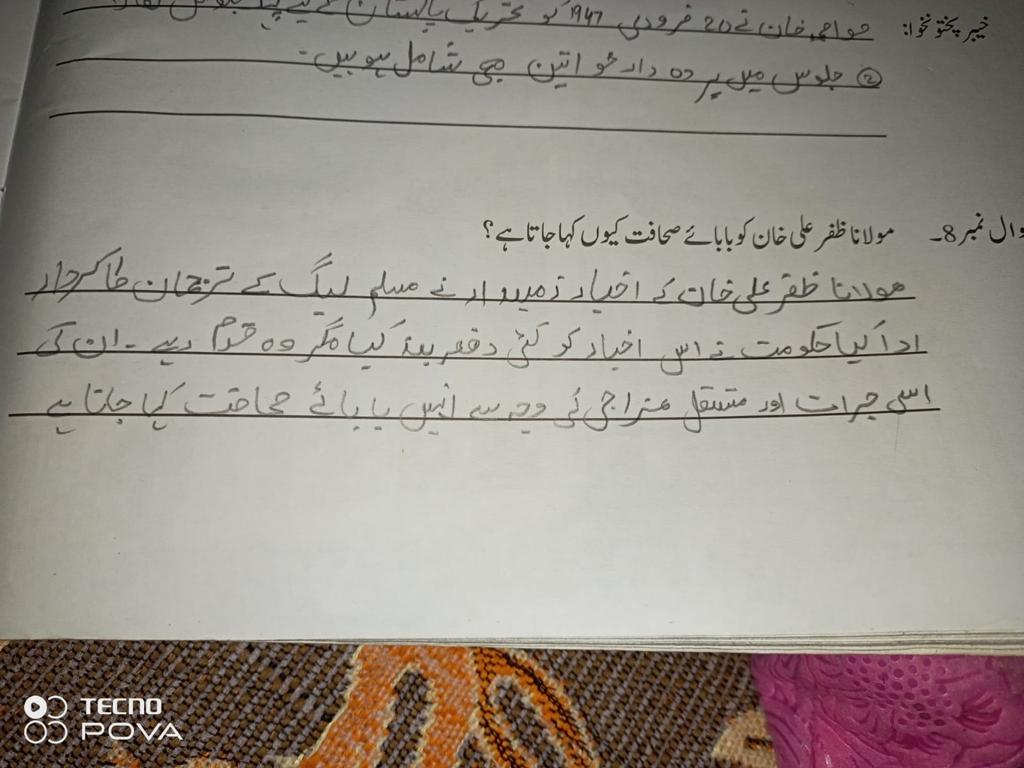 خیبر پختونخوا: خان نے 20 فروری 1947 کو تحریک پاکستان کے لیے
② جلوس میں پر دہ دار خواتین بھی شامل ہوہیں۔
وال نمبر 8۔ مولانا ظفر علی خان کو بابائے صحافت کیوں کہا جاتا ہے؟
مولانا ظفر علی خان کے اخبار زمیندار نے مسلم لیگ کے ترجمان کا کردار
ادا کیا حکومت نے اس اخبار کو کئی دفعہ بند کیا مگر وہ رہے۔ ان کی
اسی جرات اور مستقل مزاجی کی وجہ سے انہیں بابائے صحافت کہا جاتا ہے
TECNO
POVA